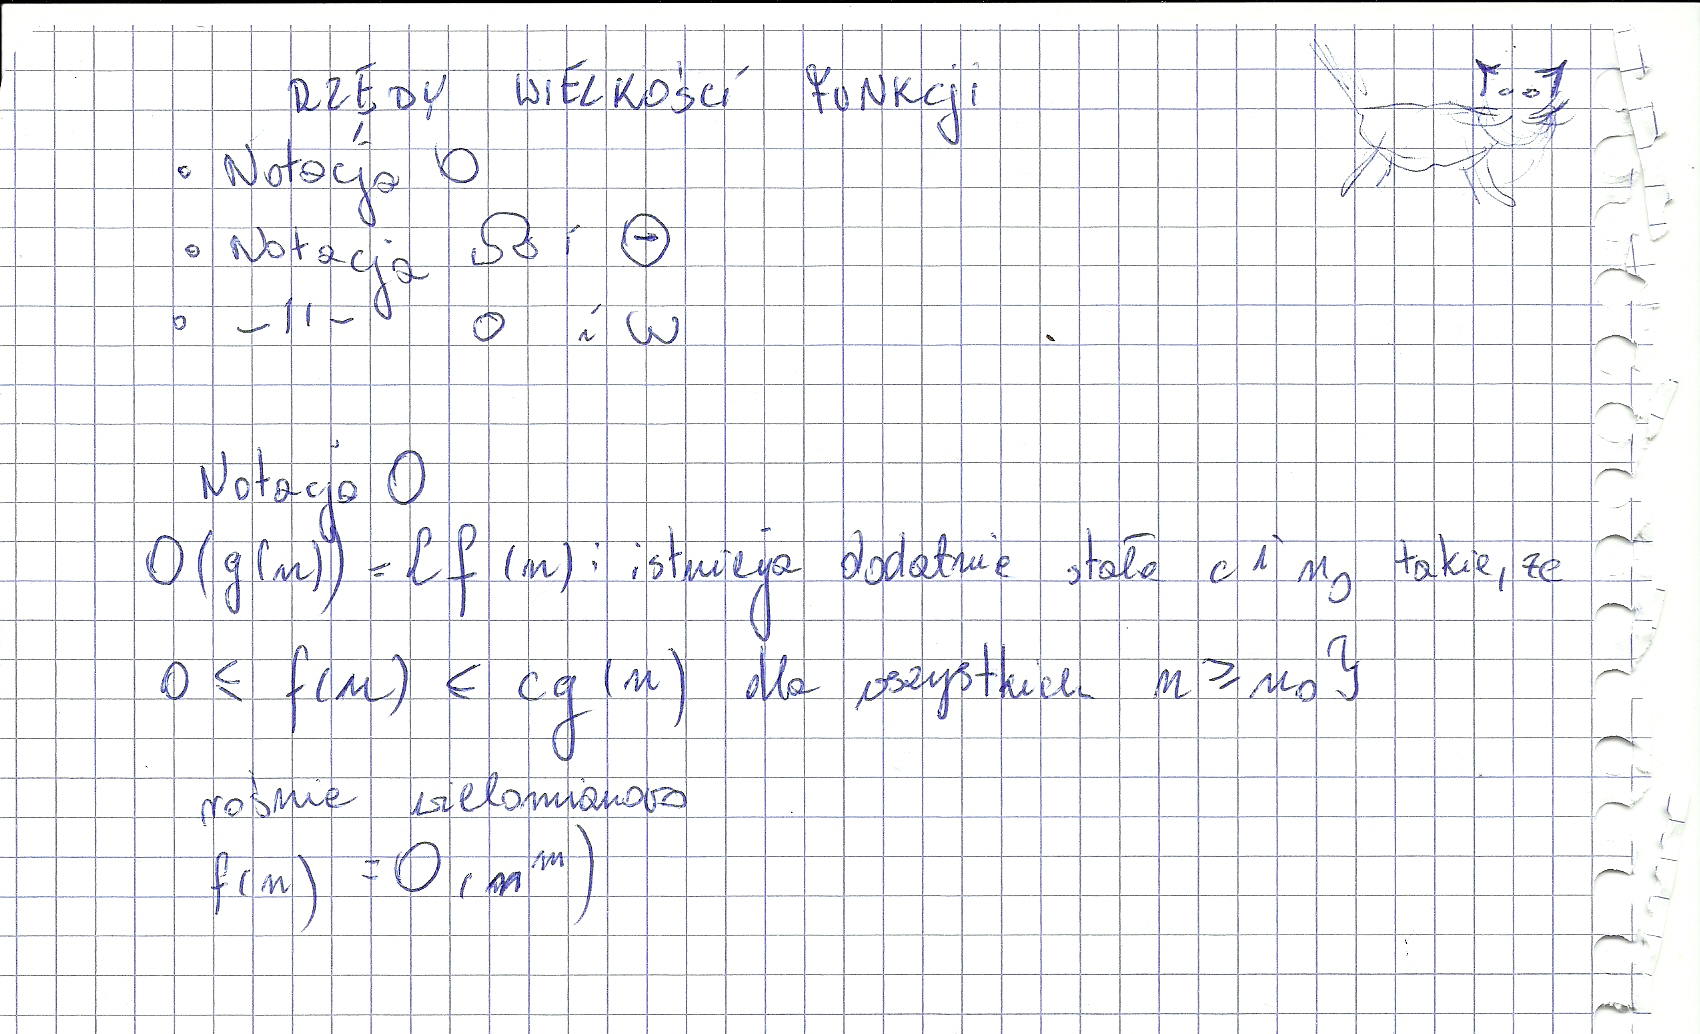 RZĘDY WIELKOŚCI FUNKCJI
• Notacja O
• Notacja Ω i Θ
• -||- o i ω
Notacja O
O(g(n)) = {f(n): istnieją dodatnie stałe c i n₀ takie, że
0 ≤ f(n) ≤ cg(n) dla wszystkich n ≥ n₀}
rośnie wielomianowo
f(n) = O(n^m)